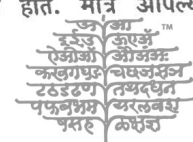 होते. मात्र आपल्य
अ आ ™
इईउ ऊएॲ
ऐओऑ औअंअः
कखगघङ चछजझञ
टठडढण तथदधन
पफबभम यरलवश
षसह ळक्षज्ञ